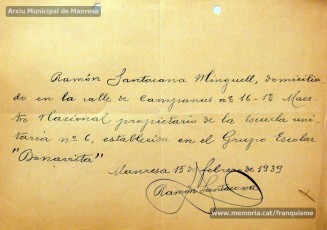 Arxiu Municipal de Manresa
Ramón Santacana Minguell, domicilia
do en la calle de Campanas nº 16-1º Maes-
tro Nacional propietario de la Escuela uni-
taria nº 6, establecida en el Grupo Escolar
"Bonavista"
Manresa 15 de febrero de 1939
Ramón Santacana
www.memoria.cat/franquisme